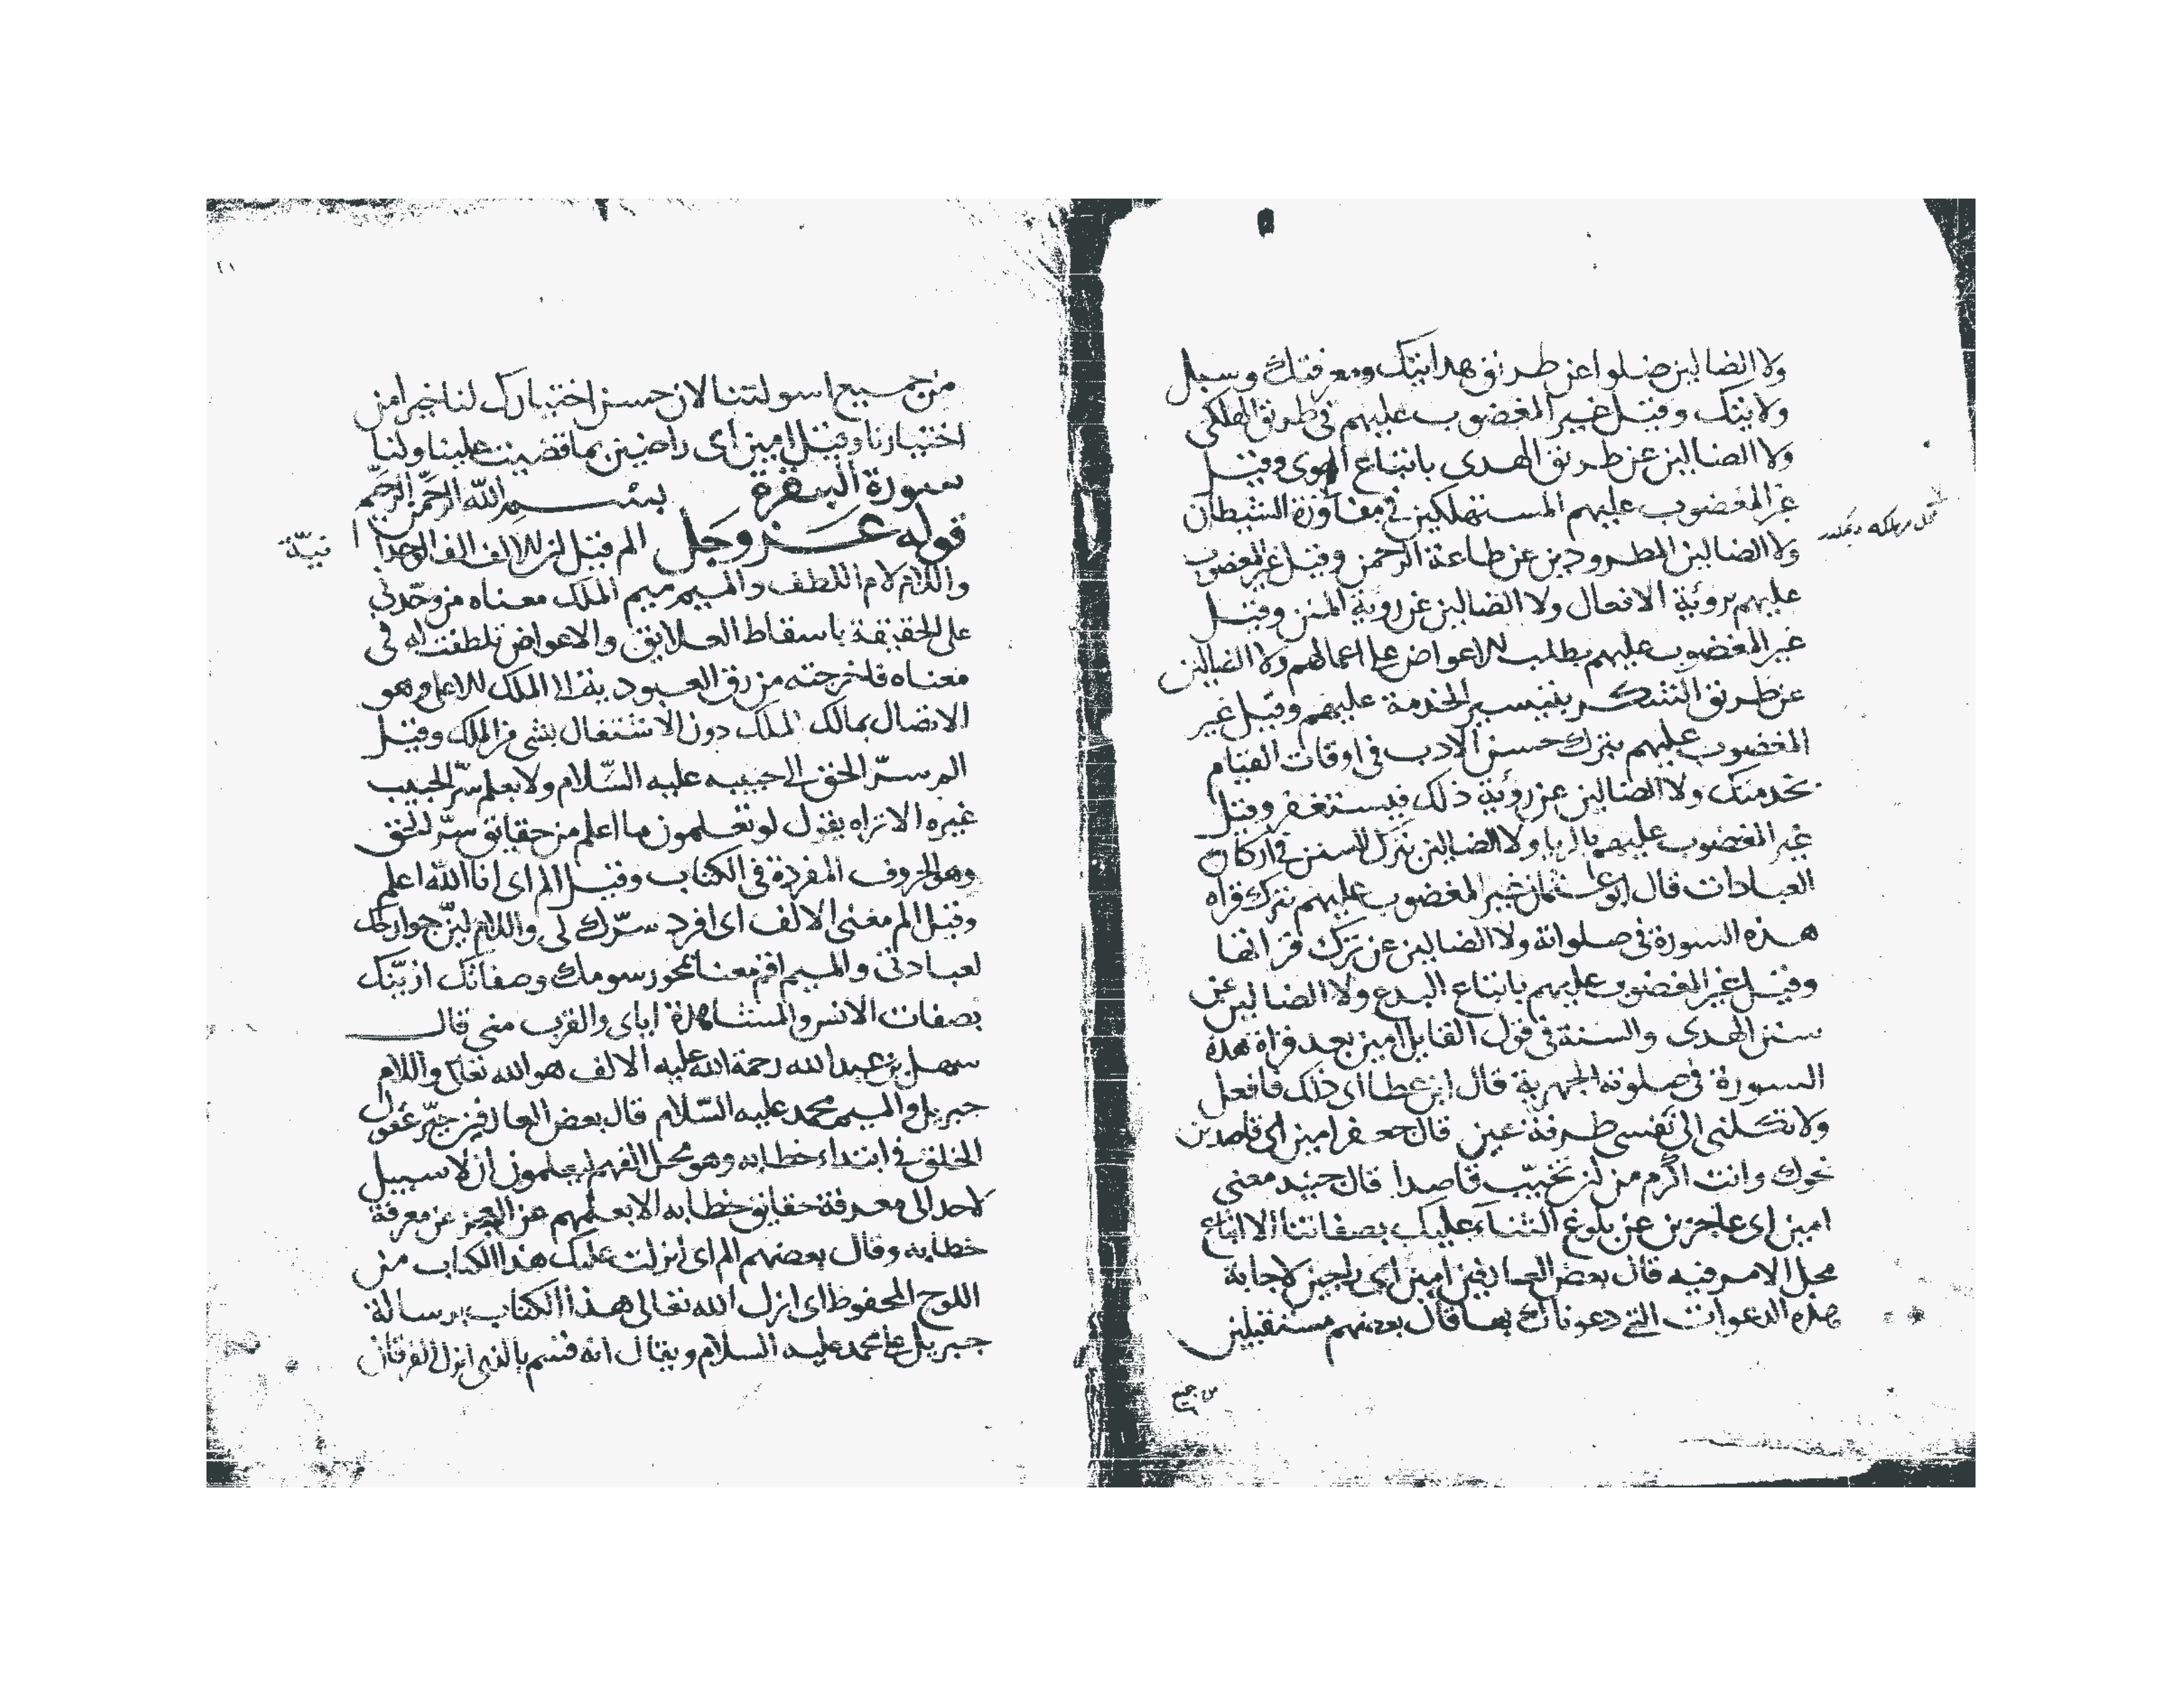 ولا الضالين ضلوا عن طريق هدايتك ومعرفتك وسبيل
ولايتك وقيل غير المغضوب عليهم في طريق الهلكى
ولا الضالين عن طريق الهدى باتباع الهوى وقيل
غير المغضوب عليهم المستهلكين في مفاوزة الشيطان
ولا الضالين المطرودين عن طاعة الرحمن وقيل غير المغضوب
عليهم برؤية الافعال ولا الضالين عن روية المنن وقيل
غير المغضوب عليهم بطلب الاعواض على اعمالهم ولا الضالين
عن طريق التشكر بتيسير الخدمة عليهم وقيل غير
المغضوب عليهم بترك حسن الادب في اوقات القيام
بخدمتك ولا الضالين عن رؤية ذلك فيستغفر وقيل
غير المغضوب عليهم بالريا ولا الضالين بترك السنن في اركان
العبادات قال ابو عثمان غير المغضوب عليهم بترك قراه
هذه السورة في صلواته ولا الضالين عن ترك قرانها
وقيل غير المغضوب عليهم باتباع البدع ولا الضالين عن
سنن الهدى والسنة في قول القايل امين بعد قراه هذه
السورة في صلوته الجهرية قال ابن عطا اى ذلك فافعل
ولا تكلنى الى نفسى طرفة عين قال جعفر امين اى قاصدين
نحوك وانت اكرم من ان تخيب قاصدا قال جنيد معنى
امين اى عاجزين عن بلوغ الثناء عليك بصفاتنا الا اتباع
محل الامر فيه قال بعض العارفين امين اى راجين لاجابة
هذه الدعوات التي دعوناك بها قال بعضهم مستقبلين
من جميع
من جميع اسولتنا لان حسن اختيارك لنا خير من
اختيارنا وقيل امين اى راضين بما قضيت علينا ولنا
سورة البقرة بسم الله الرحمن الرحيم
قوله عز وجل الم قيل ان الالف الف الوحدا
نية
واللام لام اللطف والميم ميم الملك معناه من وحدني
على الحقيقة باسقاط العلايق والاعواض تلطفت له في
معناه فاخرجته من رق العبودية الى الملك الاعلى وهو
الاتصال بمالك الملك دون الاشتغال بشى من الملك وقيل
الم سر الحق الى حبيبه عليه السلام ولا يعلم سر الحبيب
غيره الا تراه يقول لو تعلمون ما اعلم من حقايق سر الحق
وهو الحروف المفردة في الكتاب وقيل الم اى انا الله اعلم
وقيل الم معنى الالف اى افرد سرك لى واللام لين جوارحك
لعبادتى والميم اقم معنا بمحو رسومك وصفاتك ازينك
بصفات الانس والمشاهدة اياى والقرب منى قال
سهل بن عبد الله رحمة الله عليه الالف هو الله تعالى واللام
جبريل والميم محمد عليه السلام قال بعض العارفين حير عقول
الخلق في ابتداء خطابه وهو محل الفهم ليعلمون ان لا سبيل
لاحد الى معرفة حقايق خطابه الا بعلمهم عن العجز عن معرفة
خطابه وقال بعضهم الم اى انزلت عليك هذا الكتاب من
اللوح المحفوظ اى انزل الله تعالى هذا الكتاب برسالة
جبريل على محمد عليه السلام ويقال انه قسم بالذى انزل الفرقان